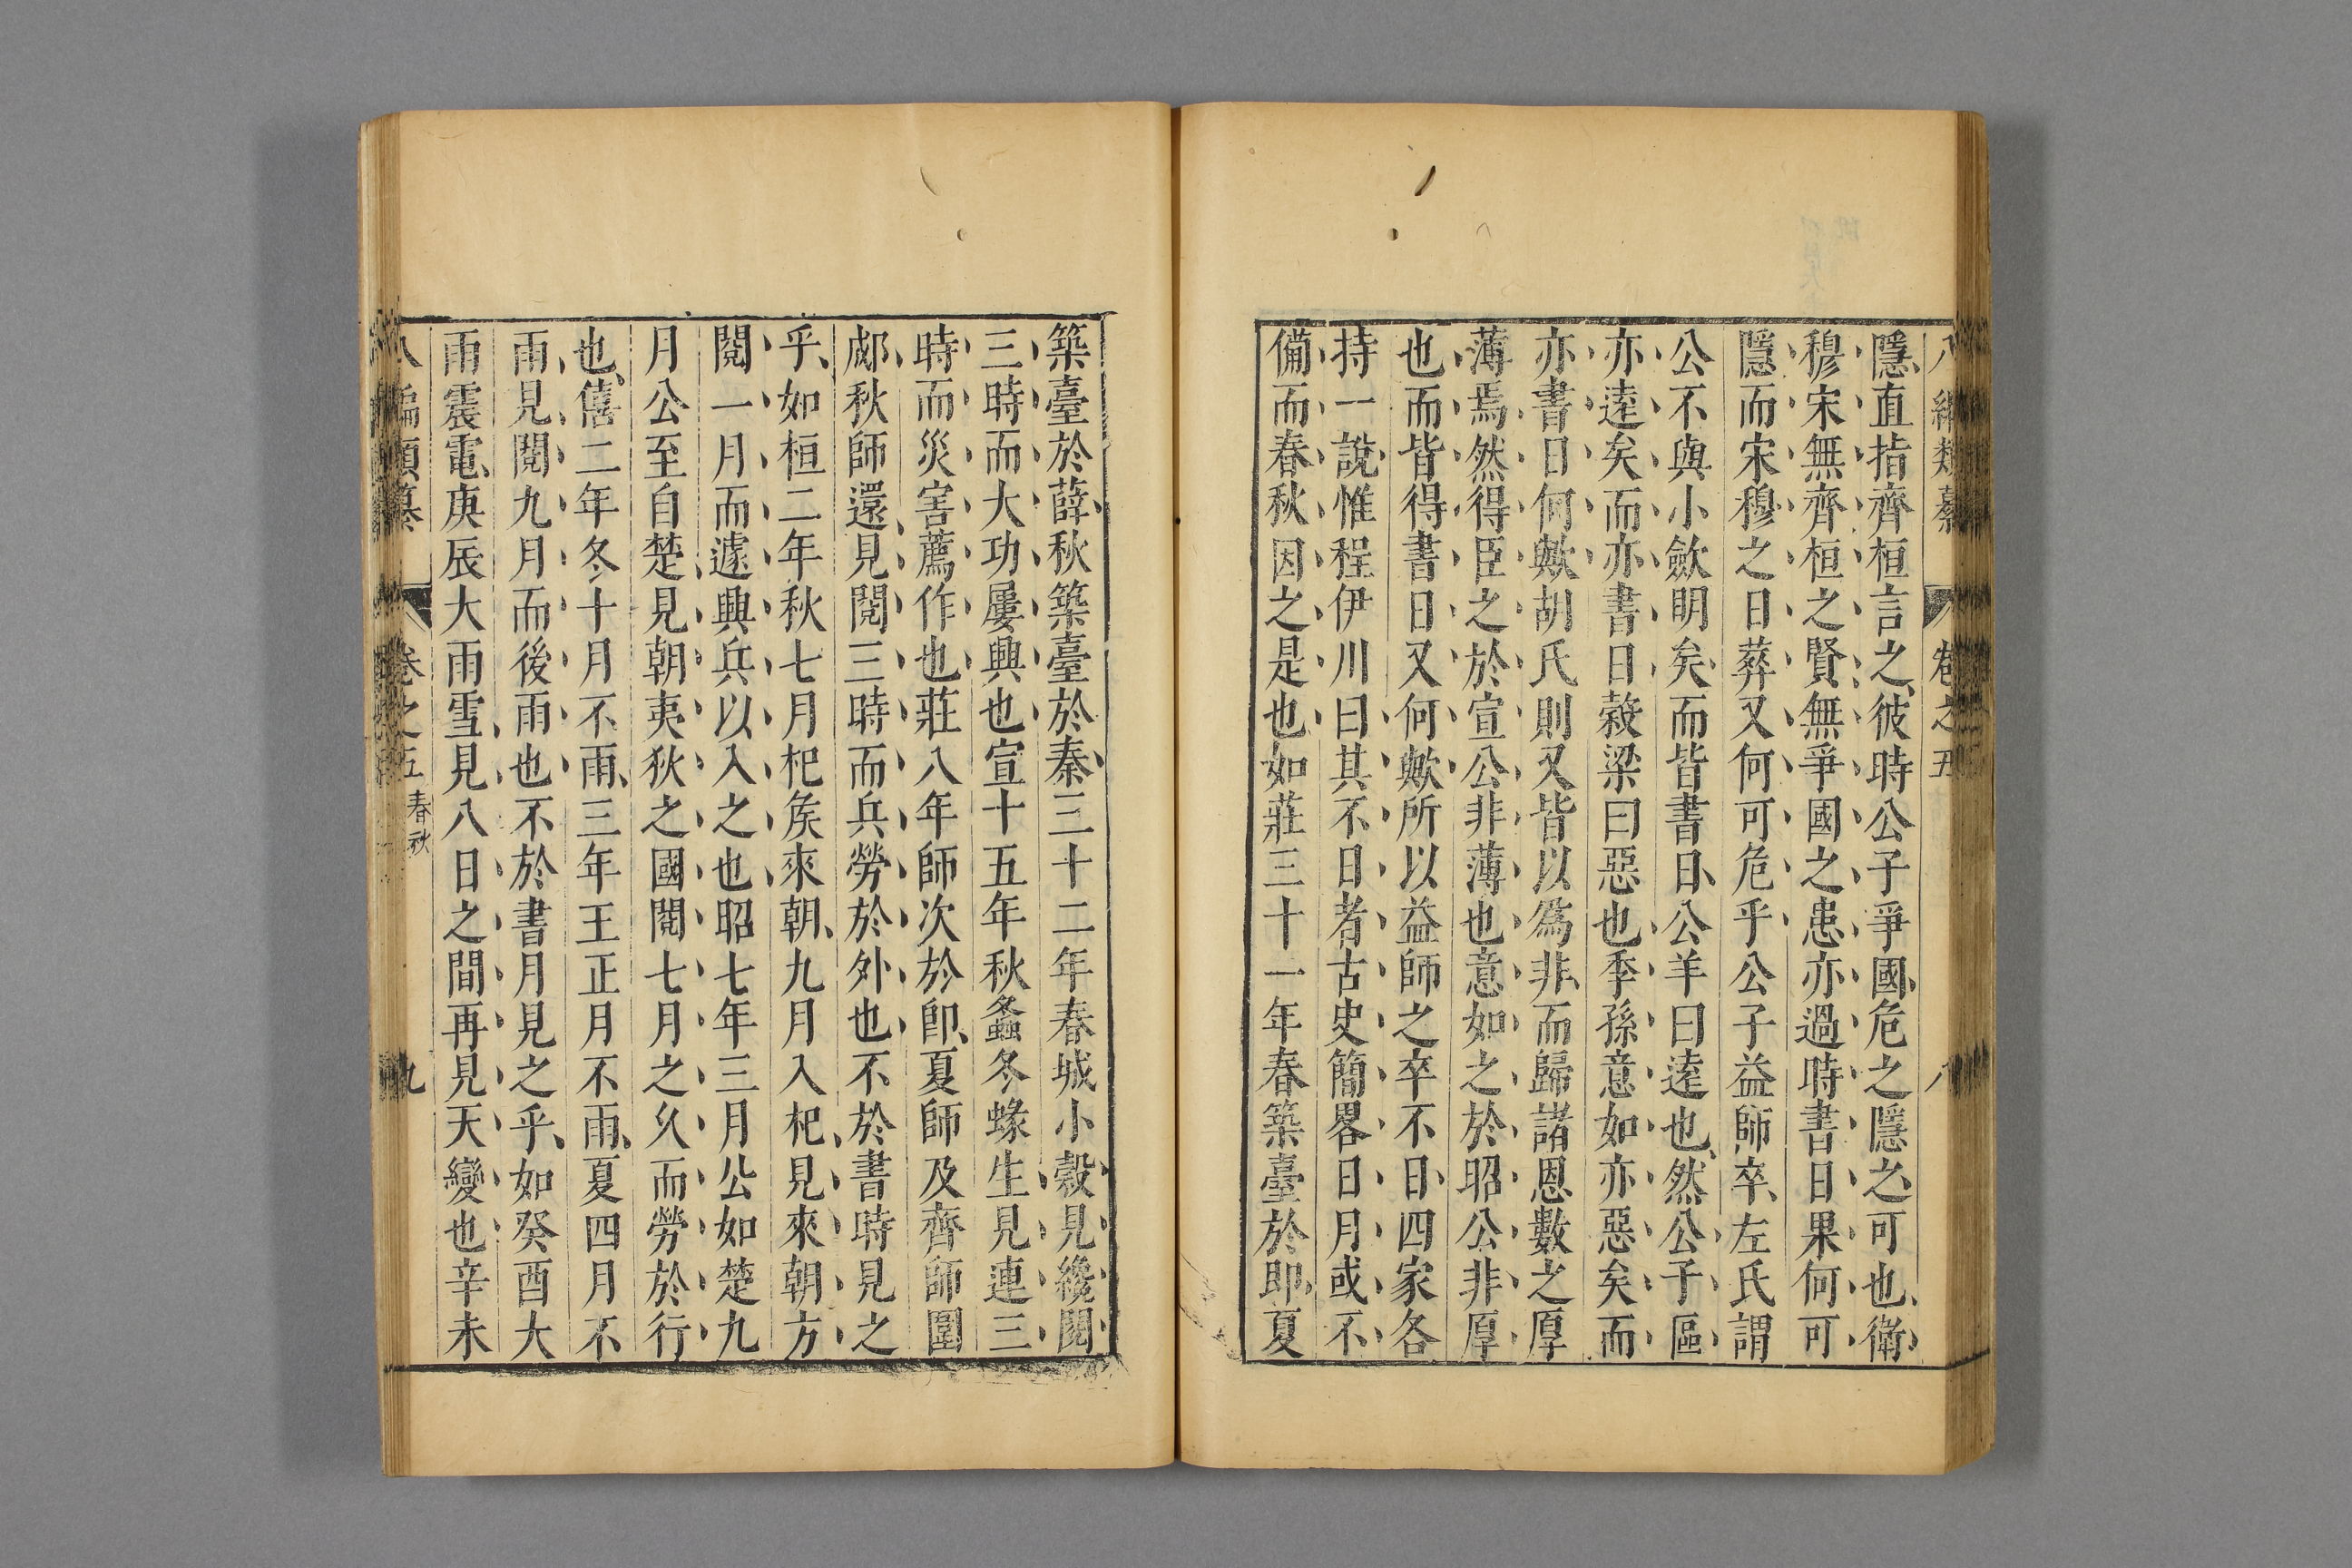 八編類纂 卷之五 八
隱直指齊桓言之彼時公子爭國危之隱之可也衛
穆宋無齊桓之賢無爭國之患亦過時書日果何可
隱而宋穆之日葬又何可危乎公子益師卒左氏謂
公不與小斂明矣而皆書日公羊曰逺也然公子區
亦逺矣而亦書日榖梁曰惡也季孫意如亦惡矣而
亦書日何歟胡氏則又皆以爲非而歸諸恩數之厚
薄焉然得臣之於宣公非薄也意如之於昭公非厚
也而皆得書日又何歟所以益師之卒不日四家各
持一說惟程伊川曰其不日者古史簡畧日月或不
備而春秋因之是也如莊三十一年春築臺於郎夏
築臺於薛秋築臺於秦三十二年春城小穀見纔閱
三時而大功屢興也宣十五年秋螽冬蝝生見連三
時而災害薦作也莊八年師次於郎夏師及齊師圍
郕秋師還見閱三時而兵勞於外也不於書時見之
乎如桓二年秋七月杞矦來朝九月入杞見來朝方
閱一月而遽興兵以入之也昭七年三月公如楚九
月公至自楚見朝夷狄之國閱七月之乆而勞於行
也僖二年冬十月不雨三年王正月不雨夏四月不
雨見閱九月而後雨也不於書月見之乎如癸酉大
雨震電庚辰大雨雪見八日之間再見天變也辛未
八編類纂 卷之五 春秋 九